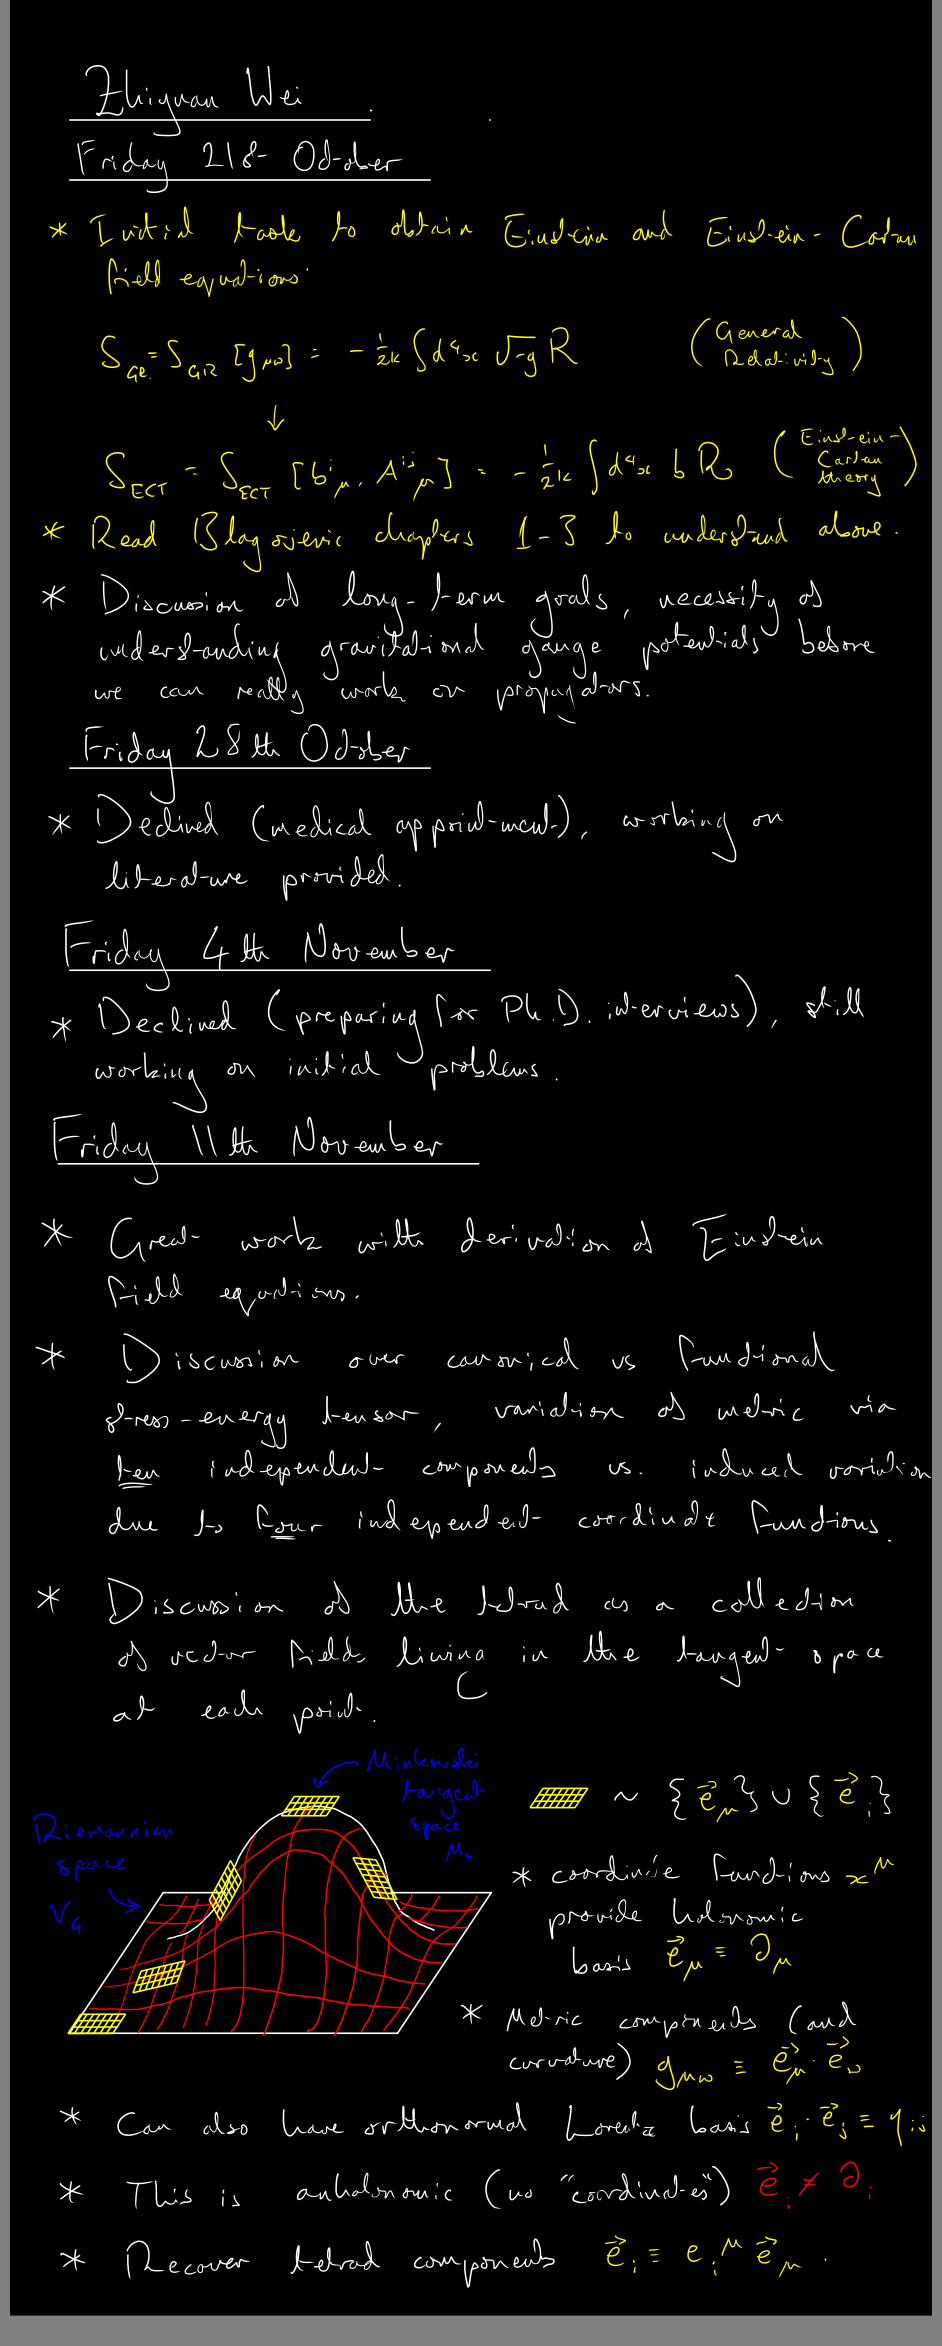 Zhiyuan Wei
Friday 21st October
* Initial task to obtain Einstein and Einstein-Cartan
field equations:
S_GR = S_GR [g_μν] = - 1/2κ ∫d⁴x √-g R (General Relativity)
↓
S_ECT = S_ECT [b^i_μ, A^ij_μ] = - 1/2κ ∫d⁴x b R (Einstein-Cartan theory)
* Read Blagojevic chapters 1-3 to understand above.
* Discussion of long-term goals, necessity of
understanding gravitational gauge potentials before
we can really work on propagators.
Friday 28th October
* Declined (medical appointment), working on
literature provided.
Friday 4th November
* Declined (preparing for Ph.D. interviews), still
working on initial problems.
Friday 11th November
* Great work with derivation of Einstein
field equations.
* Discussion over canonical vs functional
stress-energy tensor, variation of metric via
ten independent components vs. induced variation
due to four independent coordinate functions.
* Discussion of the tetrad as a collection
of vector fields living in the tangent space
at each point.
Minkowski
tangent
space
M₄
Riemannian
space
V₄
~ {e⃗_μ} ∪ {e⃗_i}
* coordinate functions x^μ
provide holonomic
basis e⃗_μ ≡ ∂_μ
* Metric components (and
curvature) g_μν ≡ e⃗_μ · e⃗_ν
* Can also have orthonormal Lorentz basis e⃗_i · e⃗_j ≡ η_ij
* This is anholonomic (no "coordinates") e⃗_i ≠ ∂_i
* Recover tetrad components e⃗_i ≡ e_i^μ e⃗_μ.